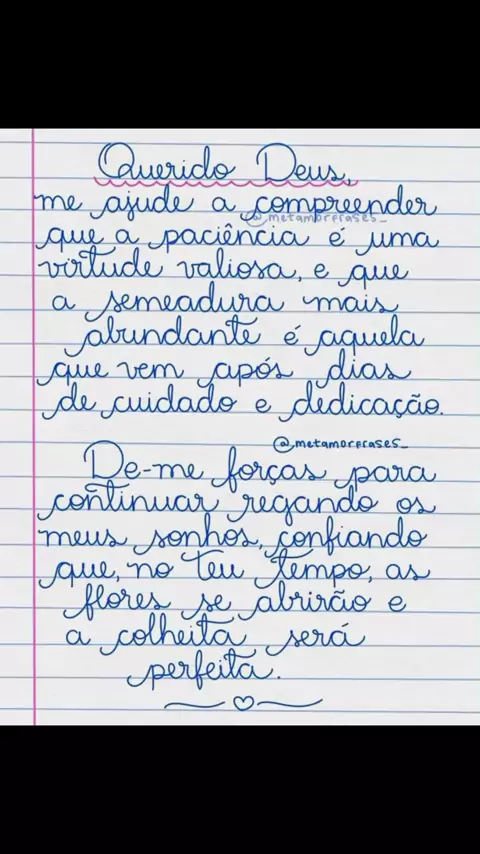 Querido Deus,
me ajude a compreender
@_metamorfrases_
que a paciência é uma
virtude valiosa, e que
a semeadura mais
abundante é aquela
que vem após dias
de cuidado e dedicação.
@metamorfrases_
De-me forças para
continuar regando os
meus sonhos, confiando
que, no teu tempo, as
flores se abrirão e
a colheita será
perfeita.